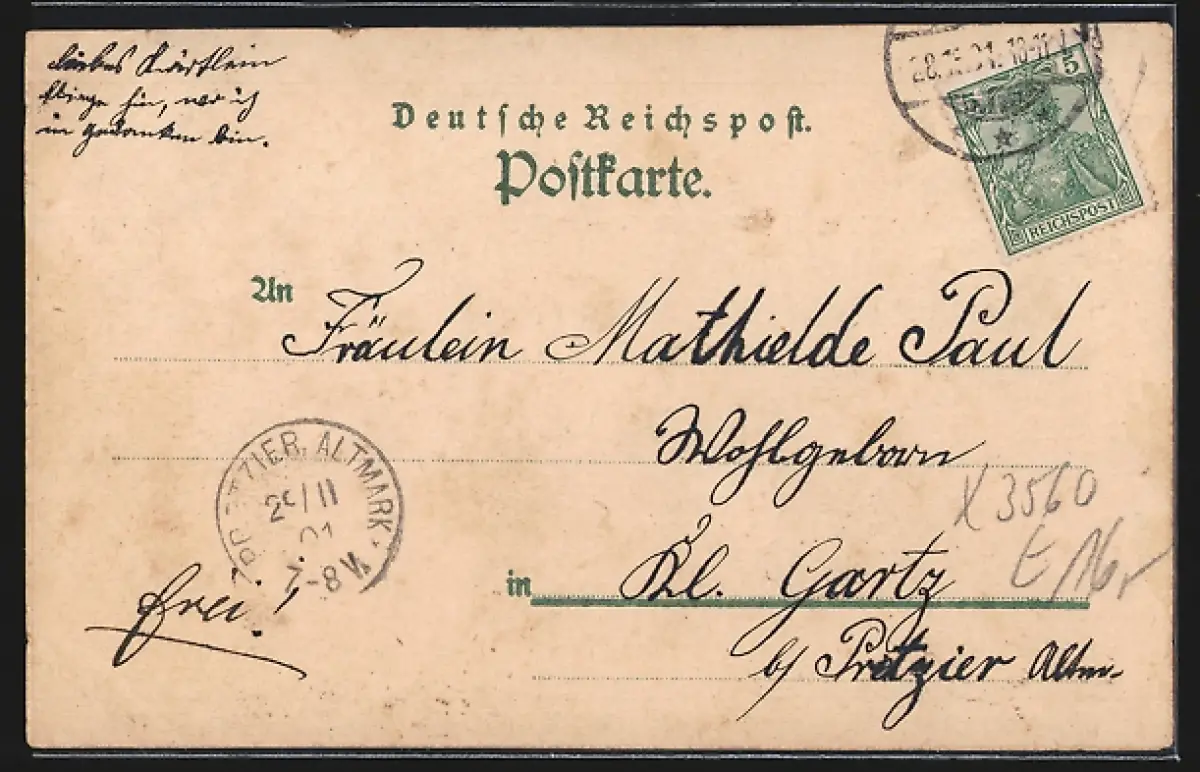 Liebes Kärtlein
fliege hin, wo ich
in Gedanken bin.
Deutſche Reichspoſt.
Poſtkarte.
5
REICHSPOST
An Fräulein Mathielde Paul
Wohlgeborn
PRETZIER, ALTMARK
29/11
01
7-8V.
X 3560
in Kl. Gartz
frei!
b/ Pretzier Altm.